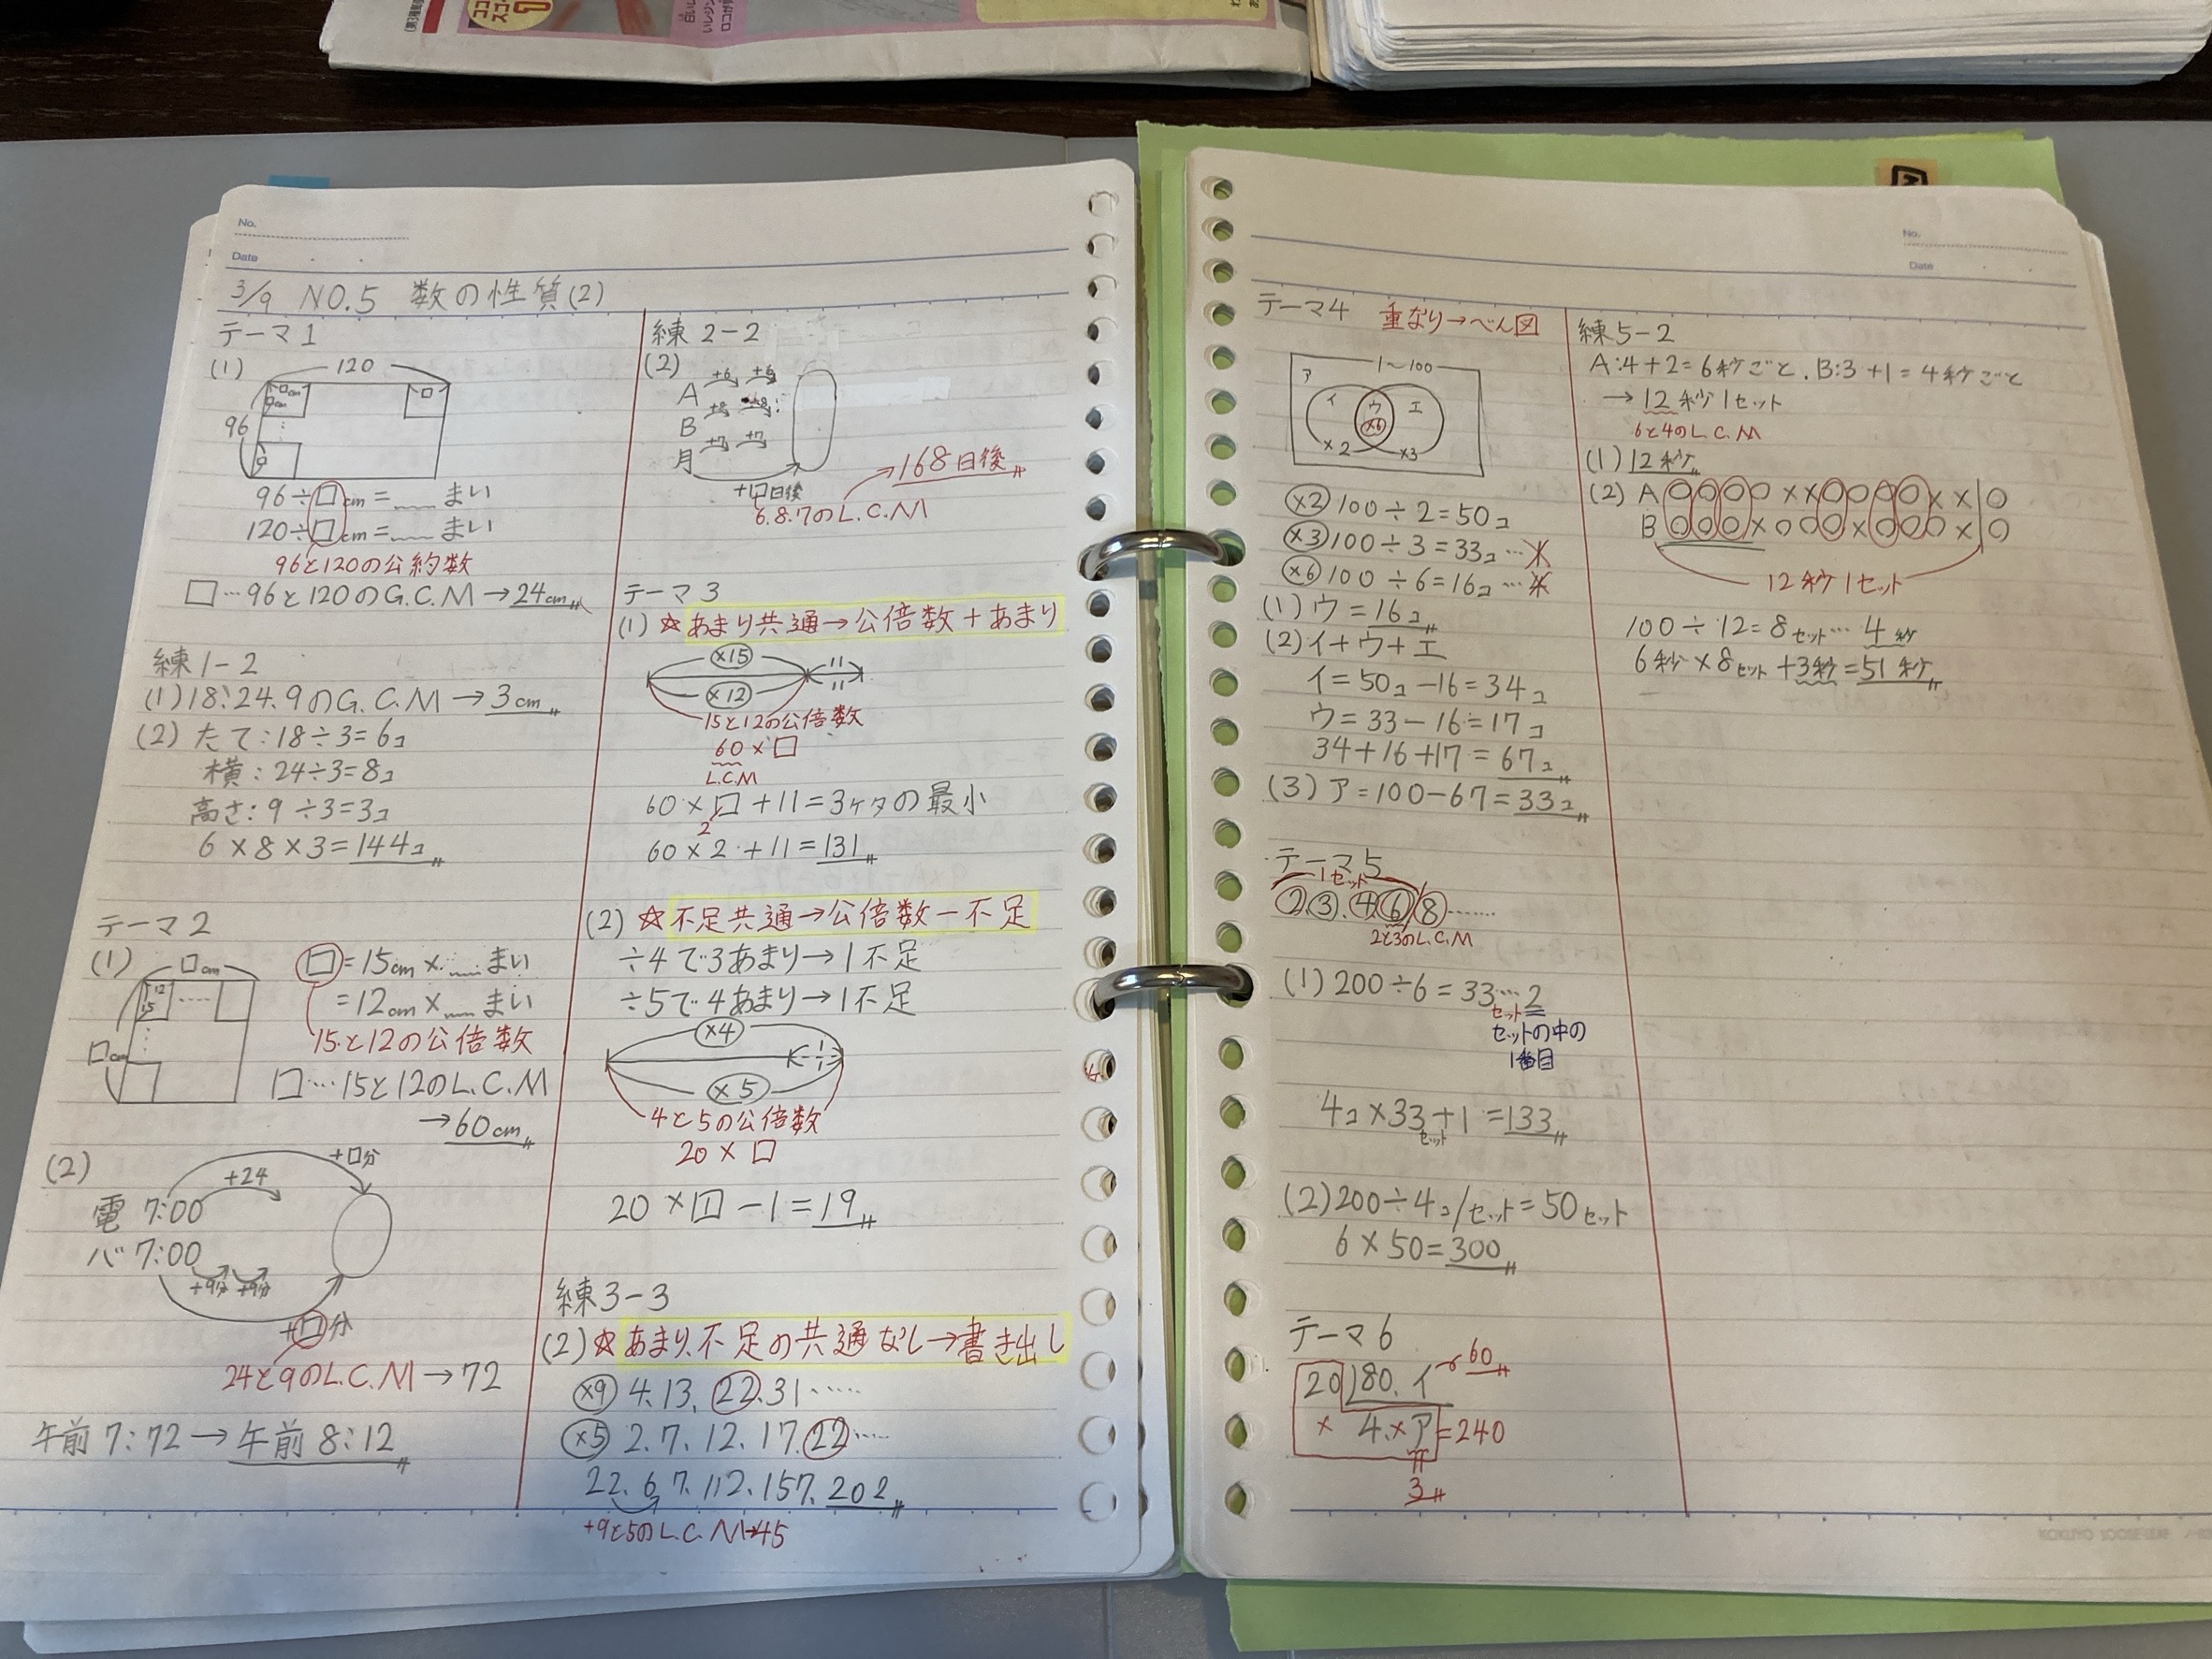 No.
Date
3/9 NO.5 数の性質(2)
テーマ1
(1)
120
□cm
□cm
□
96
□
96÷□cm=﹏まい
120÷□cm=﹏まい
96と120の公約数
□…96と120のG.C.M→24cm
練1-2
(1)18.24.9のG.C.M→3cm
(2)たて:18÷3=6コ
横:24÷3=8コ
高さ:9÷3=3コ
6×8×3=144コ
テーマ2
(1)
□cm
12
15
□cm
□=15cm×﹏まい
=12cm×﹏まい
15と12の公倍数
□…15と12のL.C.M
→60cm
(2)
+□分
+24
電 7:00
バ 7:00
+9分 +9分
+□分
24と9のL.C.M→72
午前7:72→午前8:12
練2-2
(2)
A +6 +6
B +8 +8
月 +7 +7
+□日後
6.8.7のL.C.M
→168日後
テーマ3
(1)☆あまり共通→公倍数+あまり
×15
11
×12
11
15と12の公倍数
60×□
L.C.M
60×□+11=3ケタの最小
2
60×2+11=131
(2)☆不足共通→公倍数-不足
÷4で3あまり→1不足
÷5で4あまり→1不足
×4
1
×5
4と5の公倍数
20×□
20×1-1=19
練3-3
(2)☆あまり、不足の共通なし→書き出し
×9 4.13.22.31……
×5 2.7.12.17.22……
22.67.112.157.202
+9と5のL.C.M→45
No.
Date
テーマ4 重なり→べん図
1~100
ア
イ
ウ
エ
×6
×2
×3
×2 100÷2=50コ
×3 100÷3=33コ…
×6 100÷6=16コ…
(1)ウ=16コ
(2)イ+ウ+エ
イ=50コ-16=34コ
ウ=33-16=17コ
34+16+17=67コ
(3)ア=100-67=33コ
テーマ5
1セット
2.3.4.6/8……
2と3のL.C.M
(1)200÷6=33…2
セット
セットの中の
1番目
4コ×33+1=133
セット
(2)200÷4コ/セット=50セット
6×50=300
テーマ6
20)80.イ→60
× 4.×ア=240
3
練5-2
A:4+2=6秒ごと.B:3+1=4秒ごと
→12秒1セット
6と4のL.C.M
(1)12秒
(2) A○○○○××○○○○××|○
B○○○×○○○×○○○×|○
12秒1セット
100÷12=8セット…4秒
6秒×8セット+3秒=51秒
KOKUYO LOOSE-LEAF